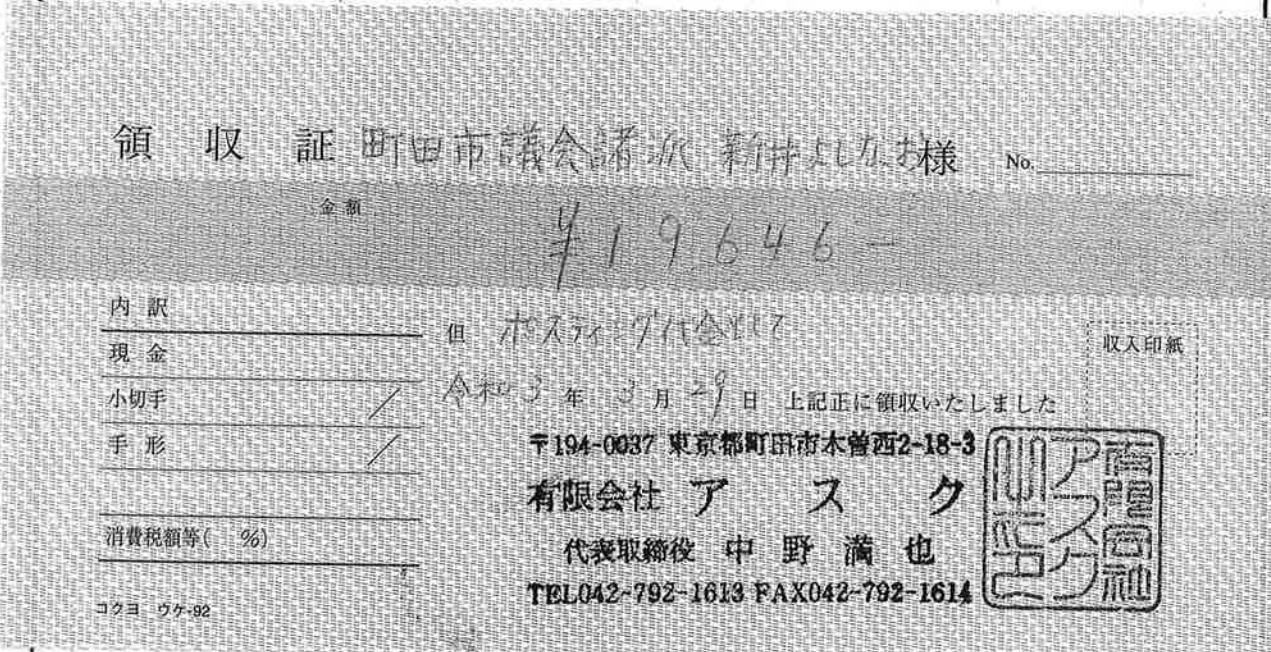 領 収 証 町田市議会諸派 新井よしなお様 No.
金額
¥19,646-
内 訳
現 金
小切手
手 形
消費税額等( %)
コクヨ ウケ-92
但 ポスティング代金として
令和3年3月29日 上記正に領収いたしました
収入印紙
〒194-0037 東京都町田市木曽西2-18-3
有限会社 ア ス ク
代表取締役 中 野 満 也
TEL042-792-1613 FAX042-792-1614
有限会社
アスク